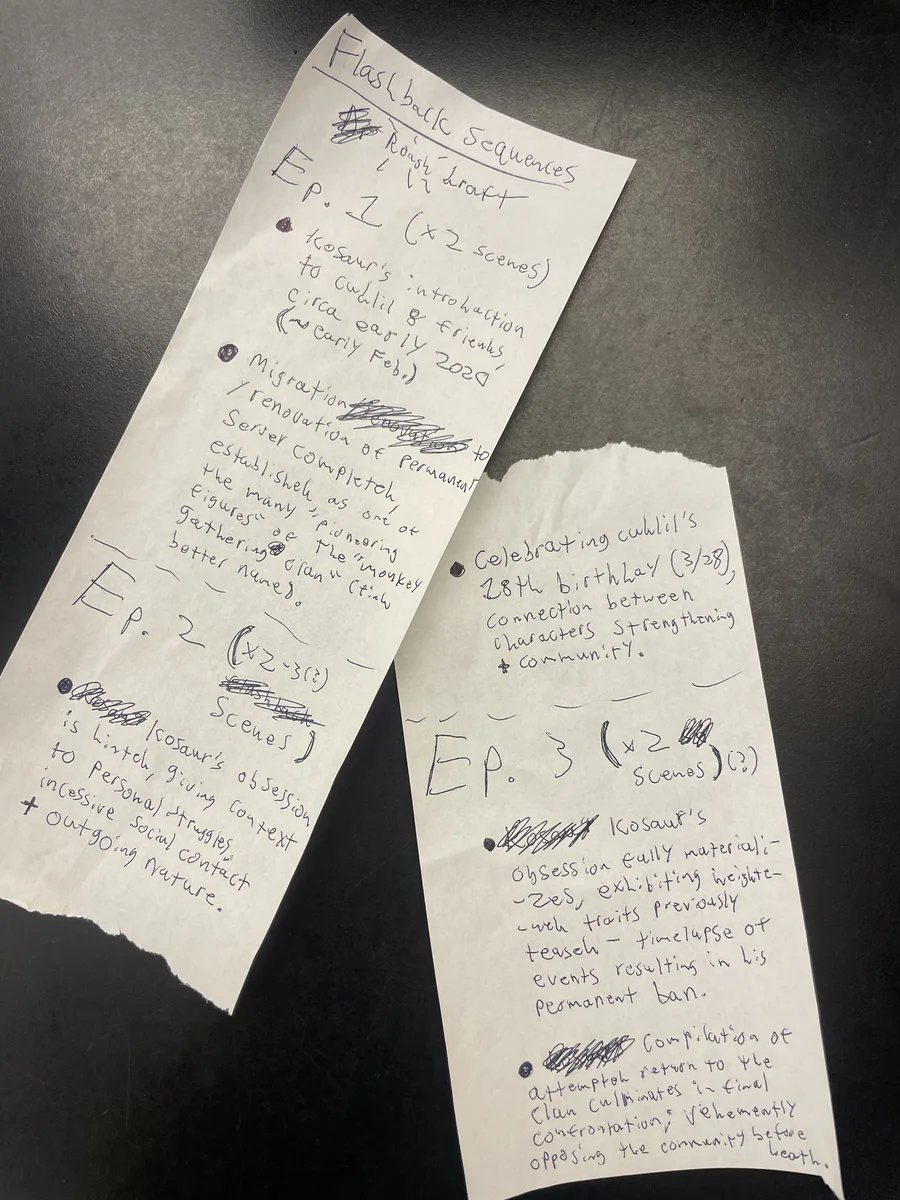 Flashback Sequences
Rough draft
Ep. 1 (x2 scenes)
• Kosaur's introduction
to cwhlil & friends,
circa early 2020
(~early Feb.)
• Migration to
/renovation of permanent
server completed,
established as one of
the many "pioneering
figures" of the "monkey
gathering clan" (find
better name).
Ep. 2 (x2-3(?)
Scenes)
• Kosaur's obsession
is hinted, giving context
to personal struggles,
incessive social contact
+ outgoing nature.
• Celebrating cwhlil's
18th birthday (3/28),
connection between
characters strengthening
+ community.
Ep. 3 (x2
scenes)(?)
• Kosaur's
obsession fully materiali-
-zes, exhibiting
traits previously
teased – timelapse of
events resulting in his
permanent ban.
• Compilation of
attempted return to the
clan culminates in final
confrontation; vehemently
opposing the community before
death.